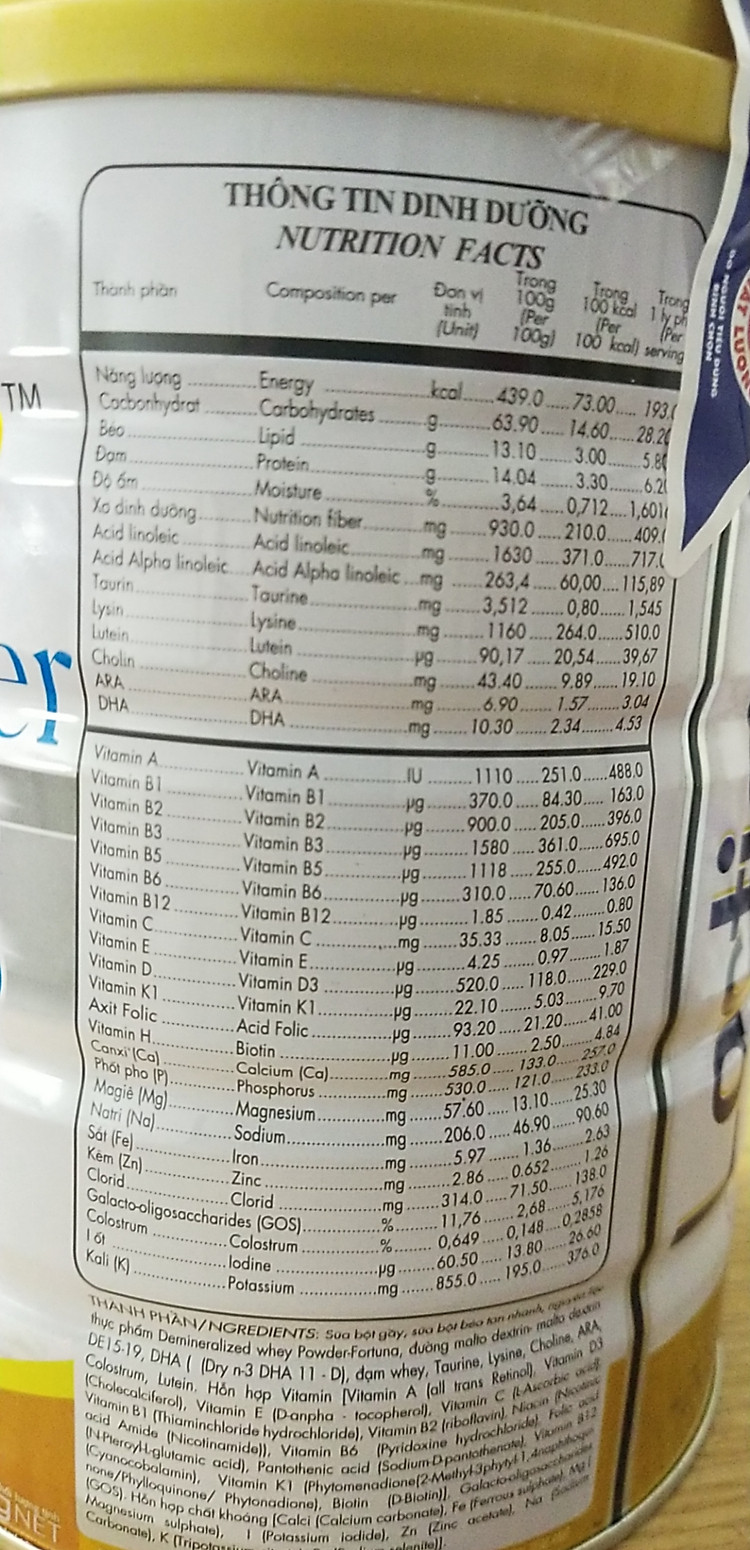 THÔNG TIN DINH DƯỠNG
NUTRITION FACTS
Thành phần Composition per Đơn vị tính (Unit) Trong 100g (Per 100g) Trong 100 kcal (Per 100 kcal) Trong 1 ly (Per serving
Năng lượng Energy kcal 439.0 73.00 193.
Cacbonhydrat Carbohydrates g 63.90 14.60 28.20
Béo Lipid g 13.10 3.00 5.8
Đạm Protein g 14.04 3.30 6.2
Độ ẩm Moisture % 3,64 0,712 1,601
Xơ dinh dưỡng Nutrition fiber mg 930.0 210.0 409.
Acid linoleic Acid linoleic mg 1630 371.0 717.
Acid Alpha linoleic Acid Alpha linoleic mg 263,4 60,00 115,89
Taurin Taurine mg 3,512 0,80 1,545
Lysin Lysine mg 1160 264.0 510.0
Lutein Lutein µg 90,17 20,54 39,67
Cholin Choline mg 43.40 9.89 19.10
ARA ARA mg 6.90 1.57 3.04
DHA DHA mg 10.30 2.34 4.53
Vitamin A Vitamin A IU 1110 251.0 488.0
Vitamin B1 Vitamin B1 µg 370.0 84.30 163.0
Vitamin B2 Vitamin B2 µg 900.0 205.0 396.0
Vitamin B3 Vitamin B3 µg 1580 361.0 695.0
Vitamin B5 Vitamin B5 µg 1118 255.0 492.0
Vitamin B6 Vitamin B6 µg 310.0 70.60 136.0
Vitamin B12 Vitamin B12 µg 1.85 0.42 0.80
Vitamin C Vitamin C mg 35.33 8.05 15.50
Vitamin E Vitamin E µg 4.25 0.97 1.87
Vitamin D Vitamin D3 µg 520.0 118.0 229.0
Vitamin K1 Vitamin K1 µg 22.10 5.03 9.70
Axit Folic Acid Folic µg 93.20 21.20 41.00
Vitamin H Biotin µg 11.00 2.50 4.84
Canxi (Ca) Calcium (Ca) mg 585.0 133.0 257.0
Phốt pho (P) Phosphorus mg 530.0 121.0 233.0
Magiê (Mg) Magnesium mg 57.60 13.10 25.30
Natri (Na) Sodium mg 206.0 46.90 90.60
Sắt (Fe) Iron mg 5.97 1.36 2.63
Kẽm (Zn) Zinc mg 2.86 0.652 1.26
Clorid Clorid mg 314.0 71.50 138.0
Galacto-oligosaccharides (GOS) % 11,76 2,68 5,176
Colostrum Colostrum % 0,649 0,148 0,2858
I ốt Iodine µg 60.50 13.80 26.60
Kali (K) Potassium mg 855.0 195.0 376.0
THÀNH PHẦN/NGREDIENTS: Sữa bột gầy, sữa bột béo tan nhanh,
thực phẩm Demineralized whey Powder-Fortuna, đường malto dextrin- malto dextrin
DE15-19, DHA ( (Dry n-3 DHA 11 - D), đạm whey, Taurine, Lysine, Choline, ARA,
Colostrum, Lutein. Hỗn hợp Vitamin [Vitamin A (all trans Retinol), Vitamin D3
(Cholecalciferol), Vitamin E (D-anpha - tocopherol), Vitamin C (L-Ascorbic acid),
Vitamin B1 (Thiaminchloride hydrochloride), Vitamin B2 (riboflavin), Niacin (Nicotinic
acid Amide (Nicotinamide)), Vitamin B6 (Pyridoxine hydrochloride), Folic acid
(N-Pteroyl-L-glutamic acid), Pantothenic acid (Sodium-D-pantothenate), Vitamin B12
(Cyanocobalamin), Vitamin K1 (Phytomenadione(2-Methyl-3phytyl-1,4naphthoqui
none/Phylloquinone/ Phytonadione), Biotin (D-Biotin)], Galacto-oligosaccharides
(GOS). Hỗn hợp chất khoáng [Calci (Calcium carbonate), Fe (Ferrous sulphate), Mg (
Magnesium sulphate), I (Potassium iodide), Zn (Zinc acetate), Na (Sodium
Carbonate), K
TM
er
NET
DO NGƯỜI TIÊU DÙNG
BÌNH CHỌN